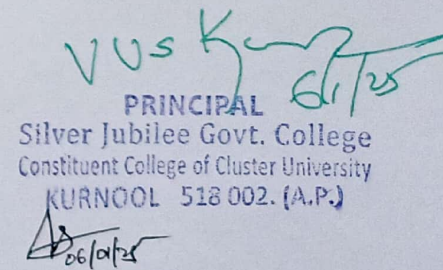 VUS
6/1/25
PRINCIPAL
Silver Jubilee Govt. College
Constituent College of Cluster University
KURNOOL 518 002. (A.P.)
06/01/25